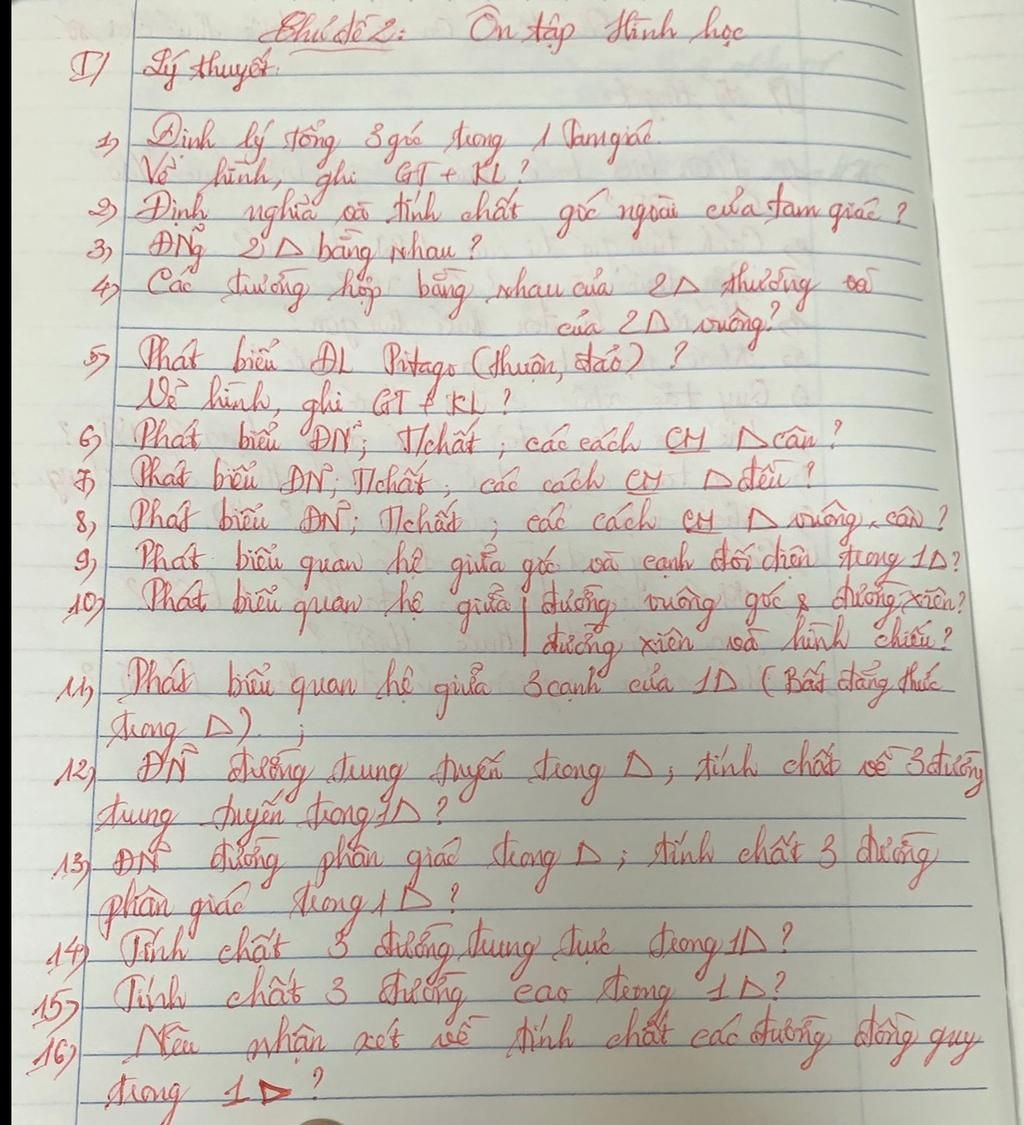 Chủ đề 2: Ôn tập Hình học
I/ Lý thuyết:
1) Định lý tổng 3 góc trong 1 tam giác.
Vẽ hình, ghi GT + KL?
2) Định nghĩa và tính chất góc ngoài của tam giác?
3) ĐNg 2 Δ bằng nhau?
4) Các trường hợp bằng nhau của 2Δ thường và
của 2Δ vuông?
5) Phát biểu ĐL Pitago (thuận, đảo)?
Vẽ hình, ghi GT + KL?
6) Phát biểu ĐN; T/chất; các cách CM Δ cân?
7) Phát biểu ĐN; T/chất; các cách CM Δ đều?
8) Phát biểu ĐN; T/chất; các cách CM Δ vuông cân?
9) Phát biểu quan hệ giữa góc và cạnh đối diện trong 1Δ?
10) Phát biểu quan hệ giữa đường vuông góc & đường xiên?
đường xiên và hình chiếu?
11) Phát biểu quan hệ giữa 3 cạnh của 1Δ (Bất đẳng thức
trong Δ).;
12) ĐN đường trung tuyến trong Δ; tính chất về 3 đường
trung tuyến trong 1Δ?
13) ĐN đường phân giác trong Δ; tính chất 3 đường
phân giác trong 1Δ?
14) Tính chất 3 đường trung trực trong 1Δ?
15) Tính chất 3 đường cao trong 1Δ?
16) Nêu nhận xét về tính chất các đường đồng quy
trong 1Δ?